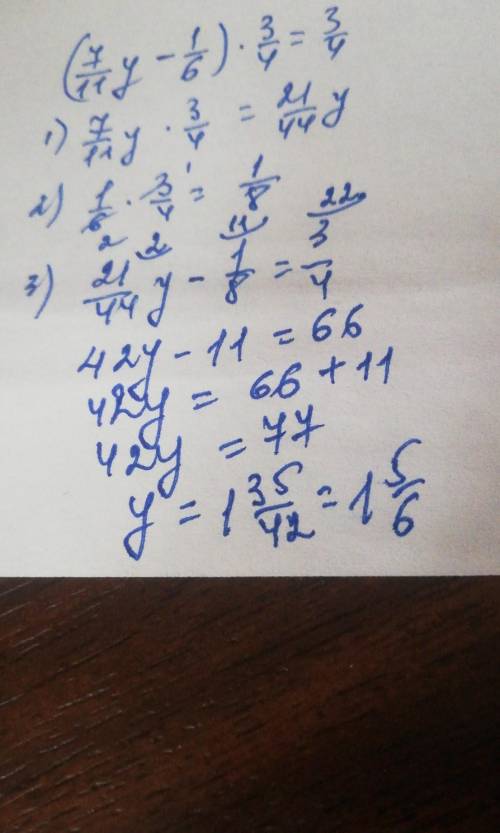 (7/11 y - 1/6) · 3/4 = 3/4
1) 7/11 y · 3/4 = 21/44 y
2) 1/6 · 3/4 = 1/8
2 1
3) 21/44 y - 1/8 = 3/4
2 11 22
42y - 11 = 66
42y = 66 + 11
42y = 77
y = 1 35/42 = 1 5/6